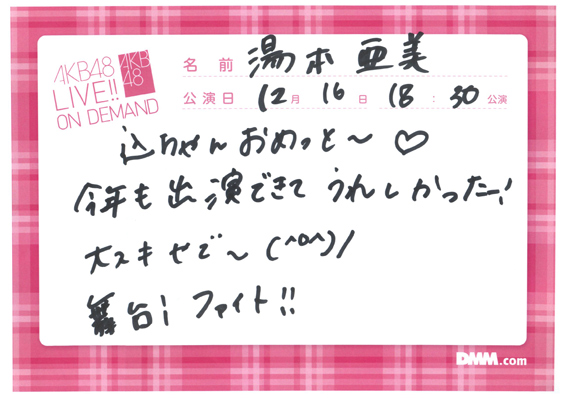 AKB48
LIVE!!
ON DEMAND
AKB
48
名前 湯本亜美
公演日 12月16日 18:30公演
込ちゃんおめっと〜♡
今年も出演できてうれしかった!
大スキやで〜(^o^)/
舞台! ファイト!!
DMM.com